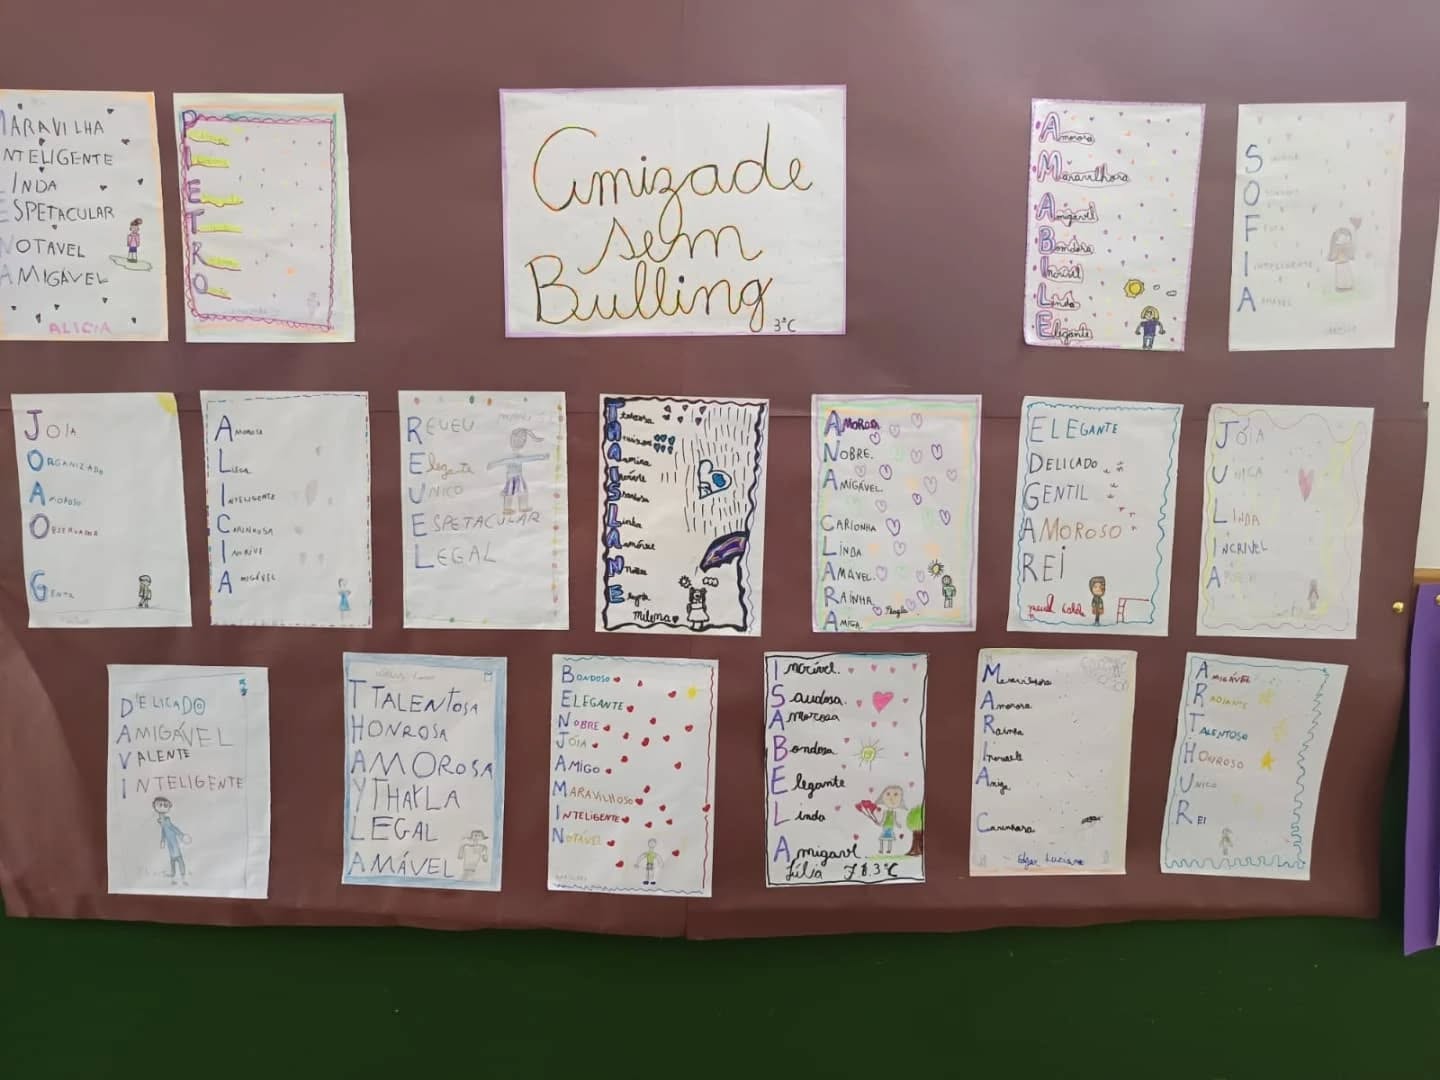 MARAVILHA
INTELIGENTE
LINDA
ESPETACULAR
NOTAVEL
AMIGÁVEL
ALICIA
PIETRO
Amizade
sem
Bulling
3ºC
Amorosa
Maravilhosa
Amigável
Bondosa
Incrível
Linda
Elegante
SOFIA
INTELIGENTE
JOIA
ORGANIZADO
AMOROSO
OBSERVADOR
GENTIL
AMOROSA
LEGAL
INTELIGENTE
CARINHOSA
AMIGÁVEL
REUEU
Elegante
UNICO
ESPETACULAR
LEGAL
THAISLANE
Linda
milena
AMOROSA
NOBRE.
AMIGÁVEL.
CARIONHA
LINDA
AMAVEL.
RAINHA.
AMIGA.
ELEGANTE
DELICADO
GENTIL
AMOROSO
REI
JÓIA
UNICA
LINDA
INCRIVEL
DELICADO
AMIGÁVEL
VALENTE
INTELIGENTE
TTALENTOSA
HONROSA
AMOROSA
YTHAYLA
LEGAL
AMÁVEL
BONDOSO
ELEGANTE
NOBRE
JÓIA
AMIGO
MARAVILHOSO
INTELIGENTE
NOTÁVEL
Incrível.
Saudosa.
Amorosa
Bondosa
Elegante
Linda
Amigavl.
Júlia 78.3ºC
Maravilhosa
Amorosa
Rainha
Amiga
Carinhosa
Edgar Luciano
AMIGÁVEL
RADIANTE
TALENTOSO
HONROSO
UNICO
REI